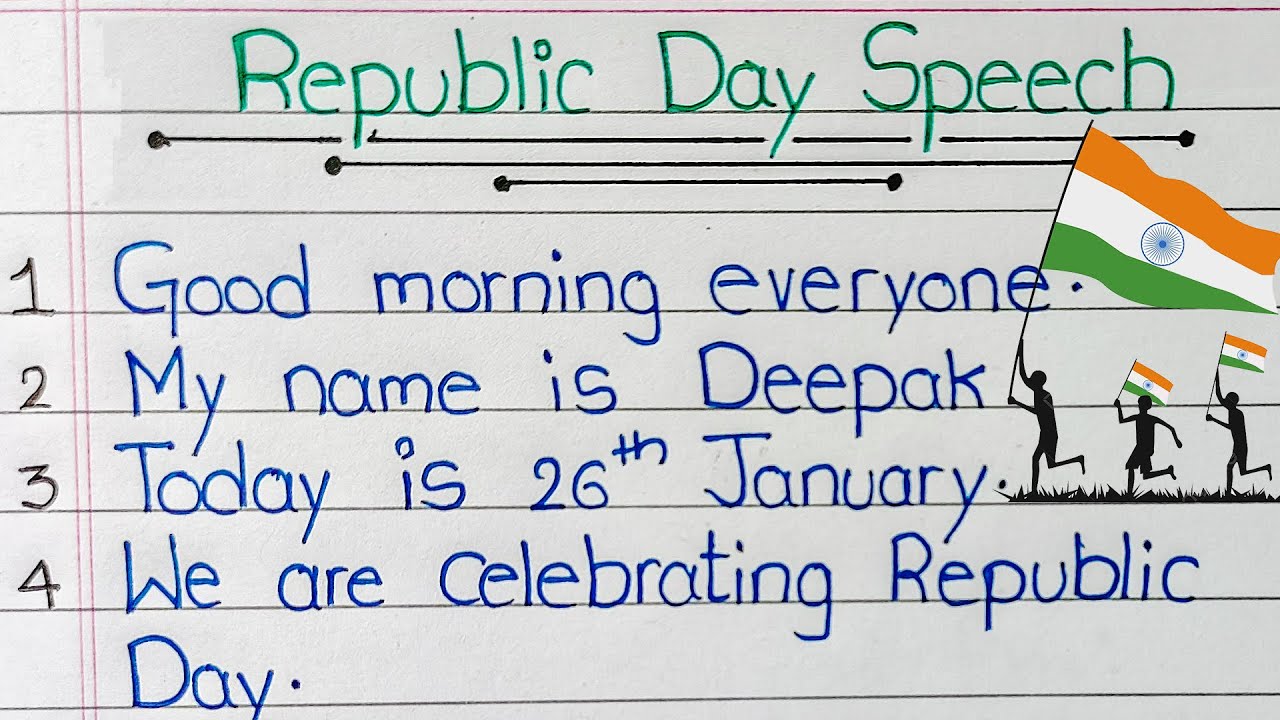 Republic Day Speech
1 Good morning everyone.
2 My name is Deepak
3 Today is 26th January.
4 We are celebrating Republic
Day.